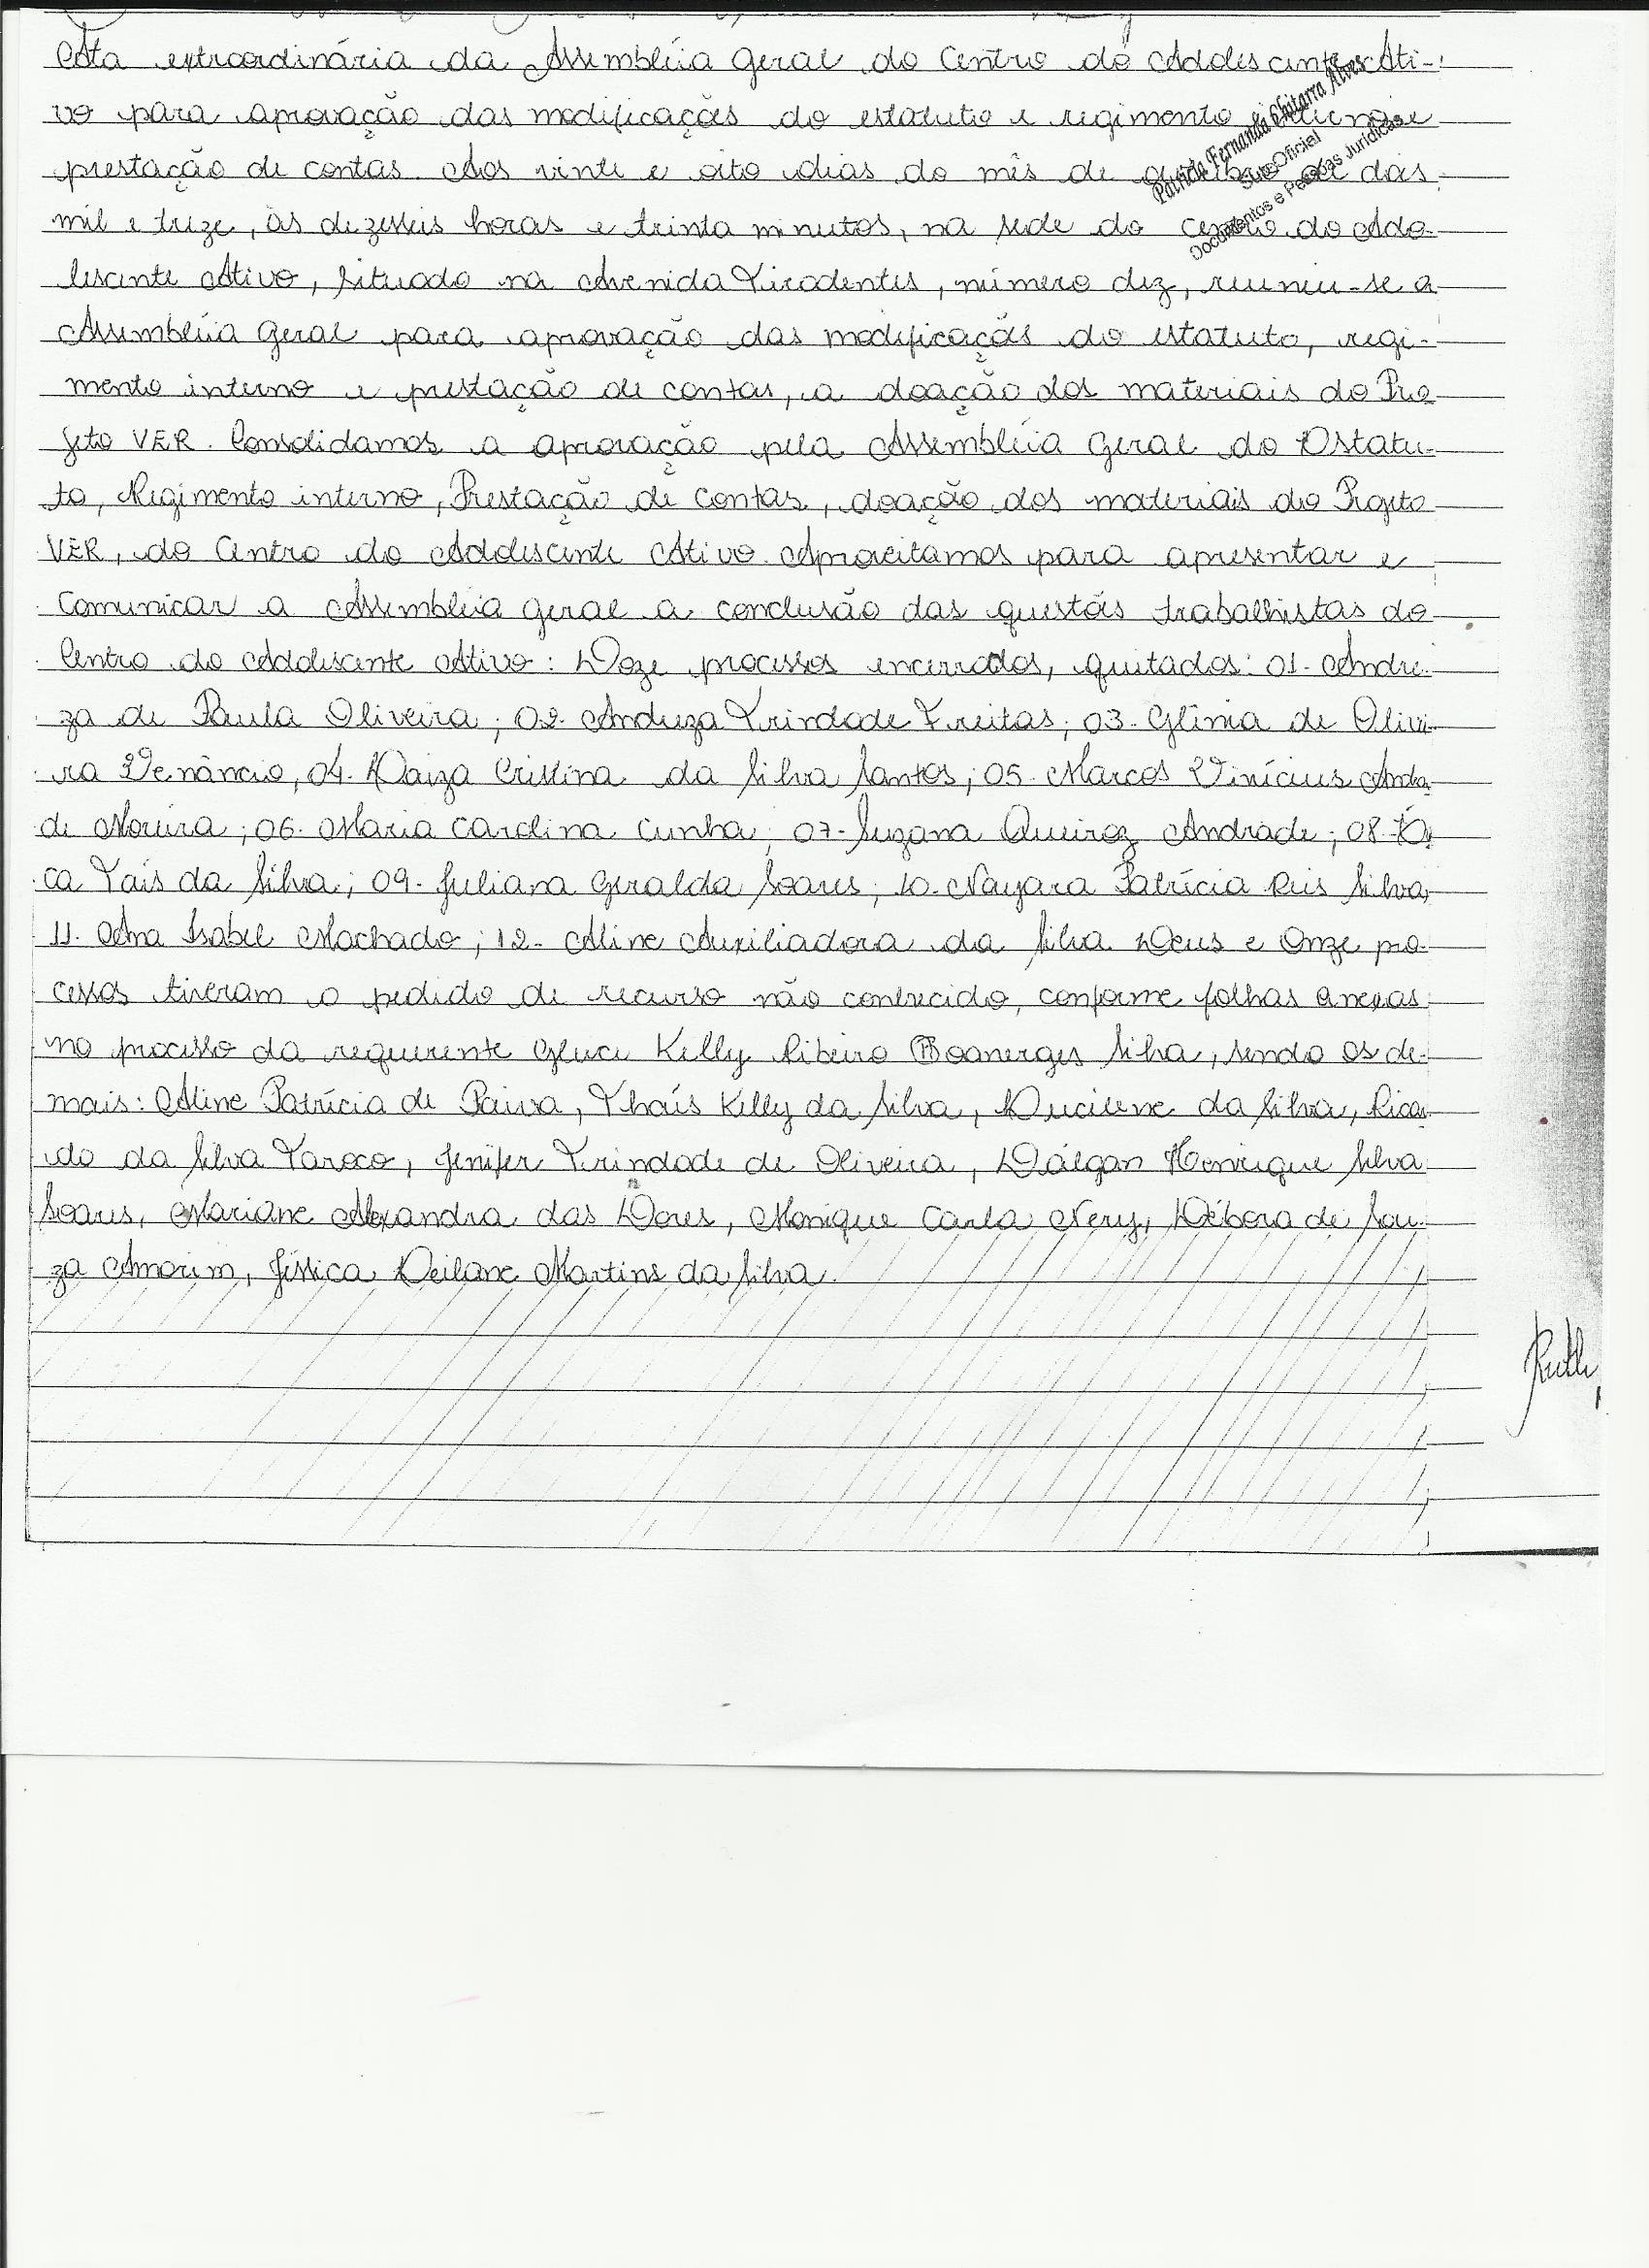 Ata extraordinária da Assembléia Geral do Centro do Adolescente Ati-
vo para aprovação das modificações do estatuto e regimento interno e
prestação de contas. Aos vinte e oito dias do mês de de dois
mil e treze, às dezesseis horas e trinta minutos, na sede do Centro do Ado-
lescente Ativo, situado na Avenida Tiradentes, número dez, reuniu-se a
Assembléia Geral para aprovação das modificações do estatuto, regi-
mento interno e prestação de contas, a doação dos materiais do Pro
jeto VER. Consolidamos a aprovação pela Assembléia Geral do Estatu-
to, Regimento interno, Prestação de Contas, doação dos materiais do Projeto
VER, do Centro do Adolescente Ativo. Aproveitamos para apresentar e
Comunicar a Assembléia Geral a conclusão das questões trabalhistas do
Centro do Adolescente Ativo: Doze processos encerrados, quitados: 01- Andre-
za de Paula Oliveira; 02- Andreza Trindade Freitas; 03- Glênia de Olivei-
ra Venâncio, 04- Daiza Cristina da Silva Santos; 05- Marcos Vinícius Andra
de Moreira; 06- Maria Carolina Cunha; 07- Suzana Queiroz Andrade; 08-
ca Tais da Silva; 09- Juliana Geralda Soares; 10- Nayara Patrícia Reis Silva,
11- Ana Isabel Machado; 12- Aline Auxiliadora da Silva Deus e Onze pro-
cessos tiveram o pedido de recurso não conhecido, conforme folhas anexas
no processo da requerente Gleice Kelly Ribeiro Boanerges Silva, sendo os de-
mais: Aline Patrícia de Paiva, Thaís Kelly da Silva, Ducilene da Silva, Ricar
do da Silva Taroco, Jenifer Trindade de Oliveira, Dálgan Henrique Silva
Soares, Mariane Alexandra das Dores, Monique Carla Nery, Débora de Sou-
za Amorim, Jéssica Deilane Martins da Silva.
Patrícia Fernanda Chitarra Alves
Sub-Oficial
Documentos e Pessoas Jurídicas
Ruth